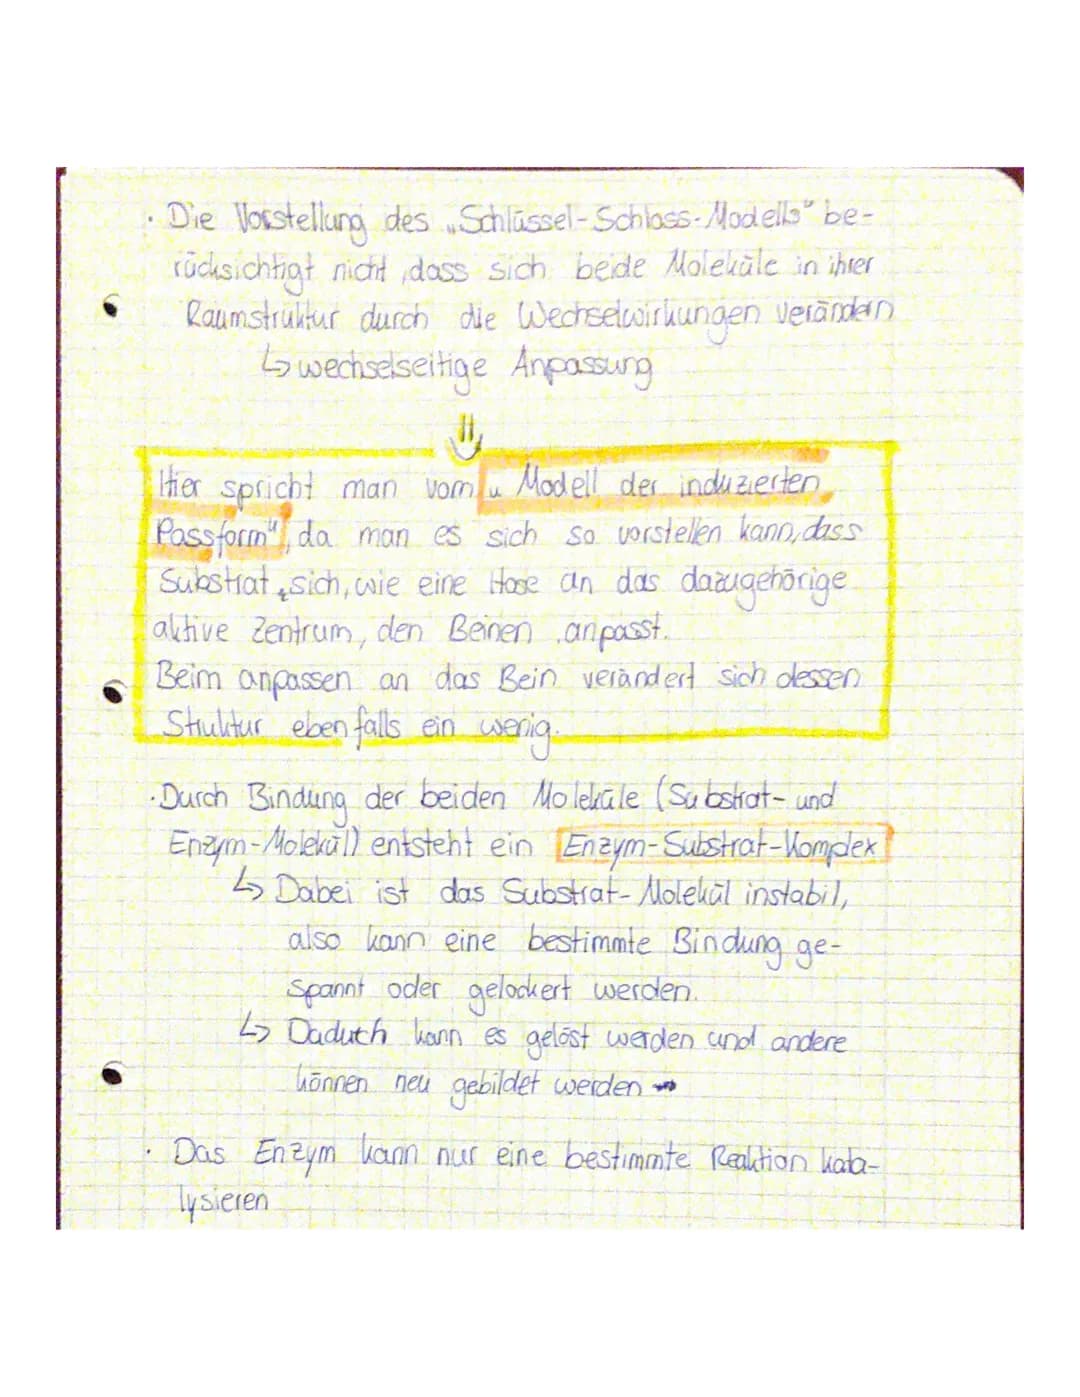 · Die Vorstellung des „Schlüssel-Schloss-Modells" be-
rücksichtigt nicht, dass sich beide Moleküle in ihrer
Raumstruktur durch die Wechselwirkungen verändern
↳ wechselseitige Anpassung
⇓
Hier spricht man vom „Modell der induzierten
Passform", da man es sich so vorstellen kann, dass
Substrat sich, wie eine Hose an das dazugehörige
aktive Zentrum, den Beinen anpasst.
Beim anpassen an das Bein verändert sich dessen
Struktur ebenfalls ein wenig.
· Durch Bindung der beiden Moleküle (Substrat- und
Enzym-Molekül) entsteht ein Enzym-Substrat-Komplex
↳ Dabei ist das Substrat-Molekül instabil,
also kann eine bestimmte Bindung ge-
spannt oder gelockert werden.
↳ Daduch kann es gelöst werden und andere
können neu gebildet werden →
· Das Enzym kann nur eine bestimmte Reaktion kata-
lysieren